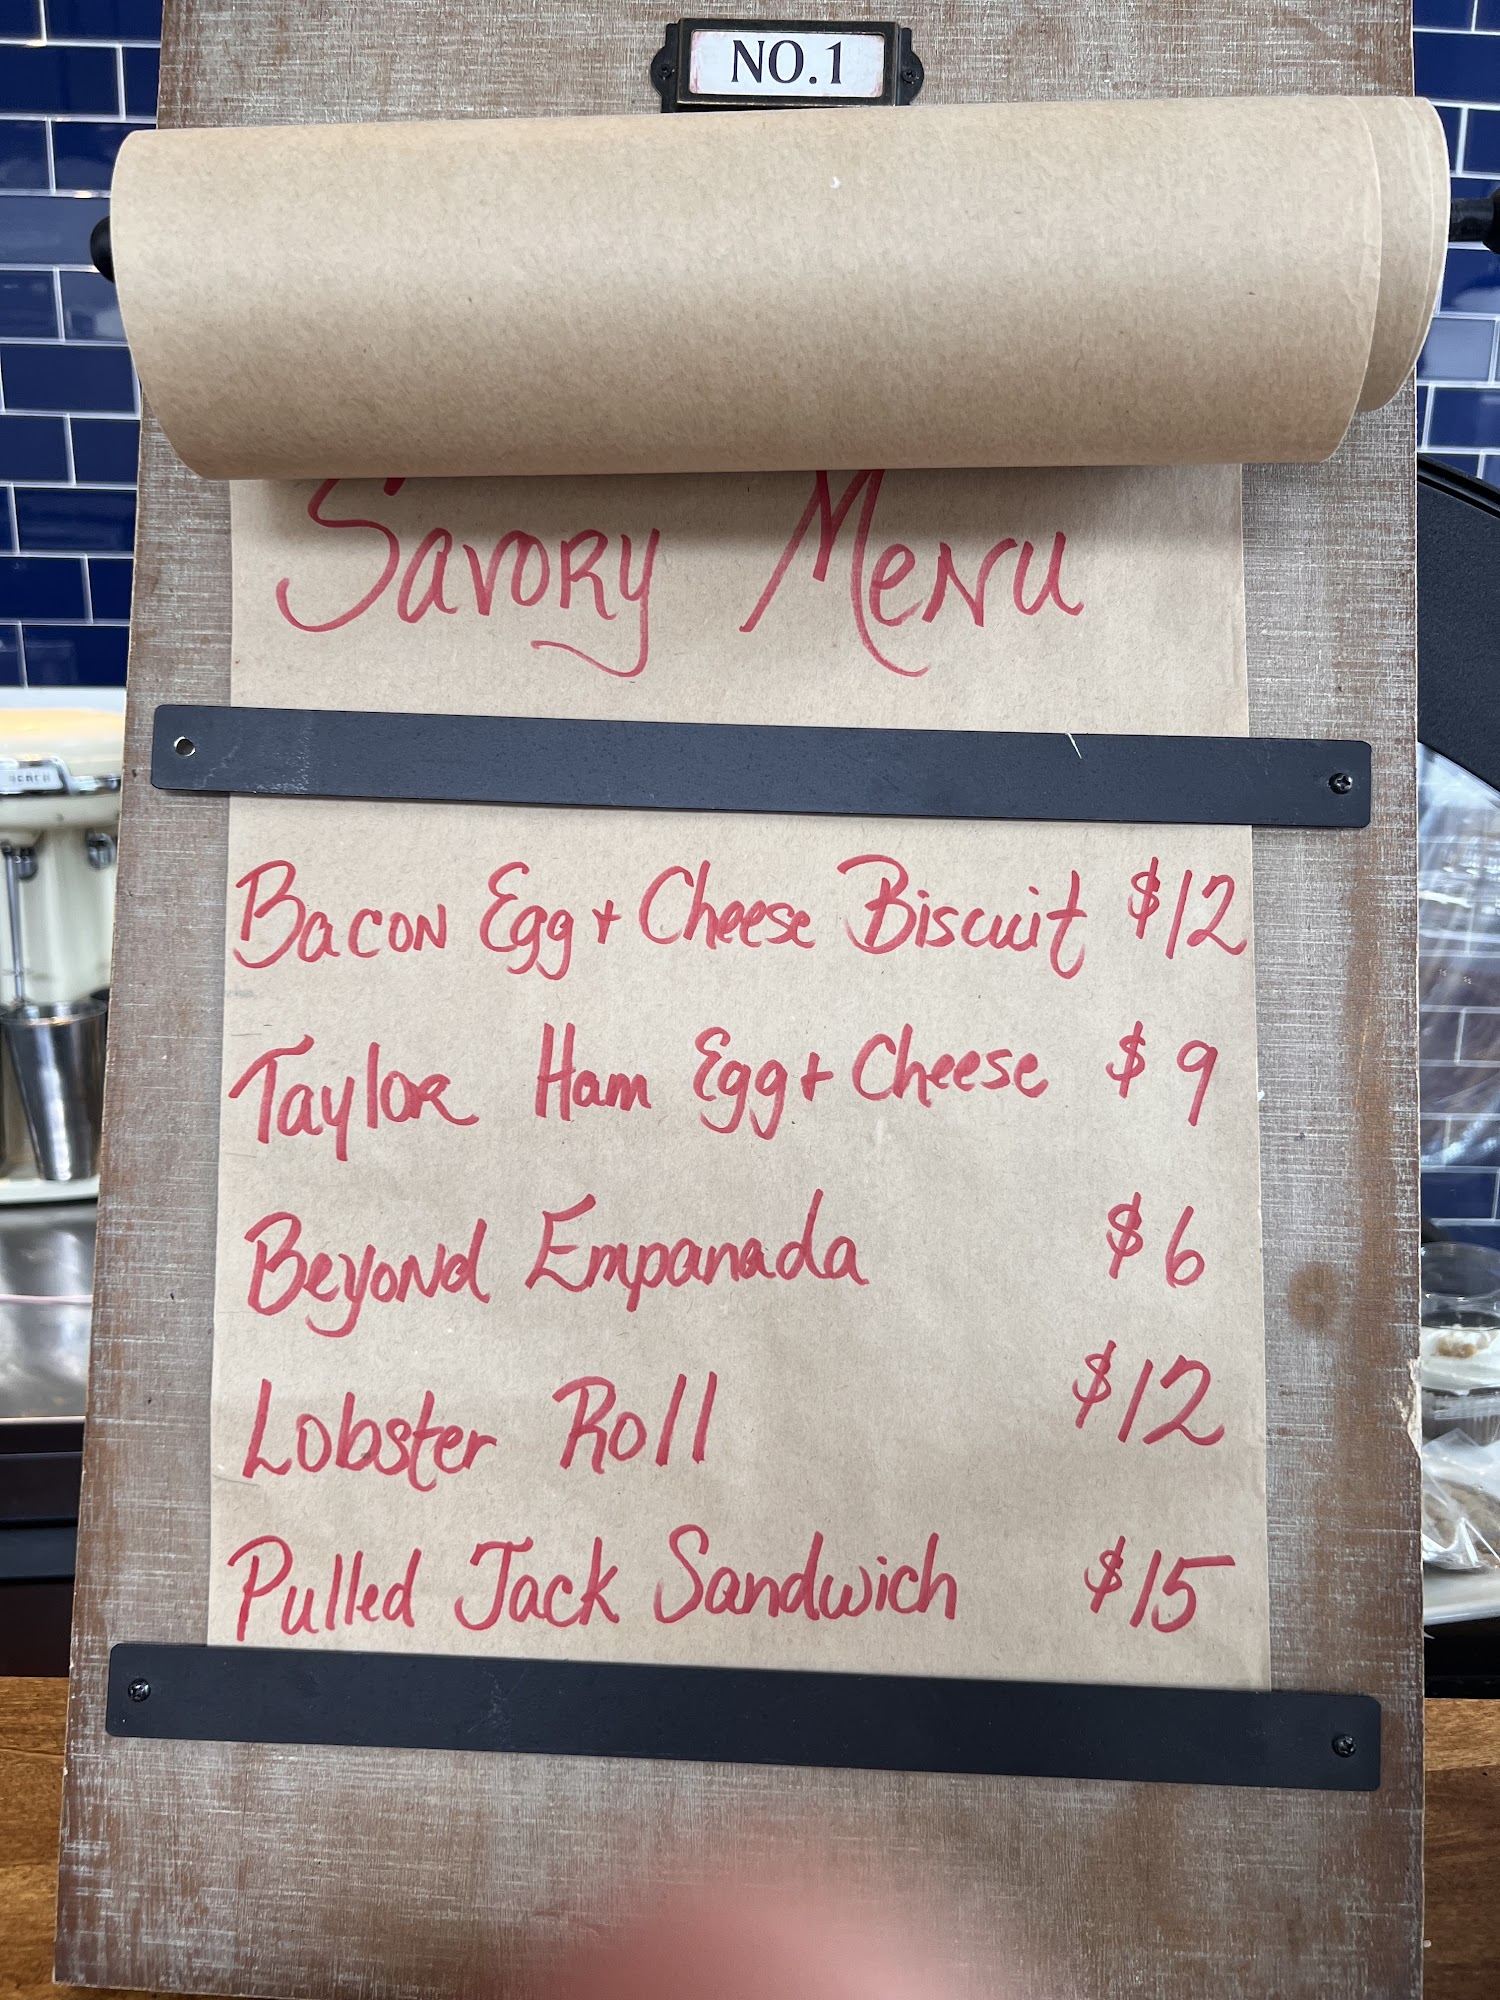 NO.1
Savory Menu
Bacon Egg + Cheese Biscuit $12
Taylor Ham Egg + Cheese $9
Beyond Empanada $6
Lobster Roll $12
Pulled Jack Sandwich $15